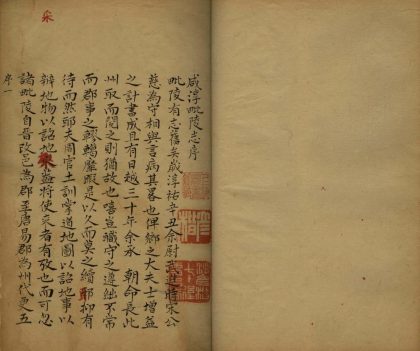 咸淳毗陵志序
毗陵有志舊矣歲淳祐辛丑余尉武進時宋公
慈為守相與言病其畧也俾鄉之大夫士增益
之計書成且有日越三十年余承 朝命長此
州取而閱之則猶故也嘻豈職守之遷紬不常
而郡事之轇轕靡暇是以久而莫之續耶抑有
待而然耶夫周官土訓掌道地圖以詔地事以
辨地物以詔地求益將使爰者有攷也而可忽
諸毗陵自晉改邑為郡至唐易郡為州代更五
序一
采